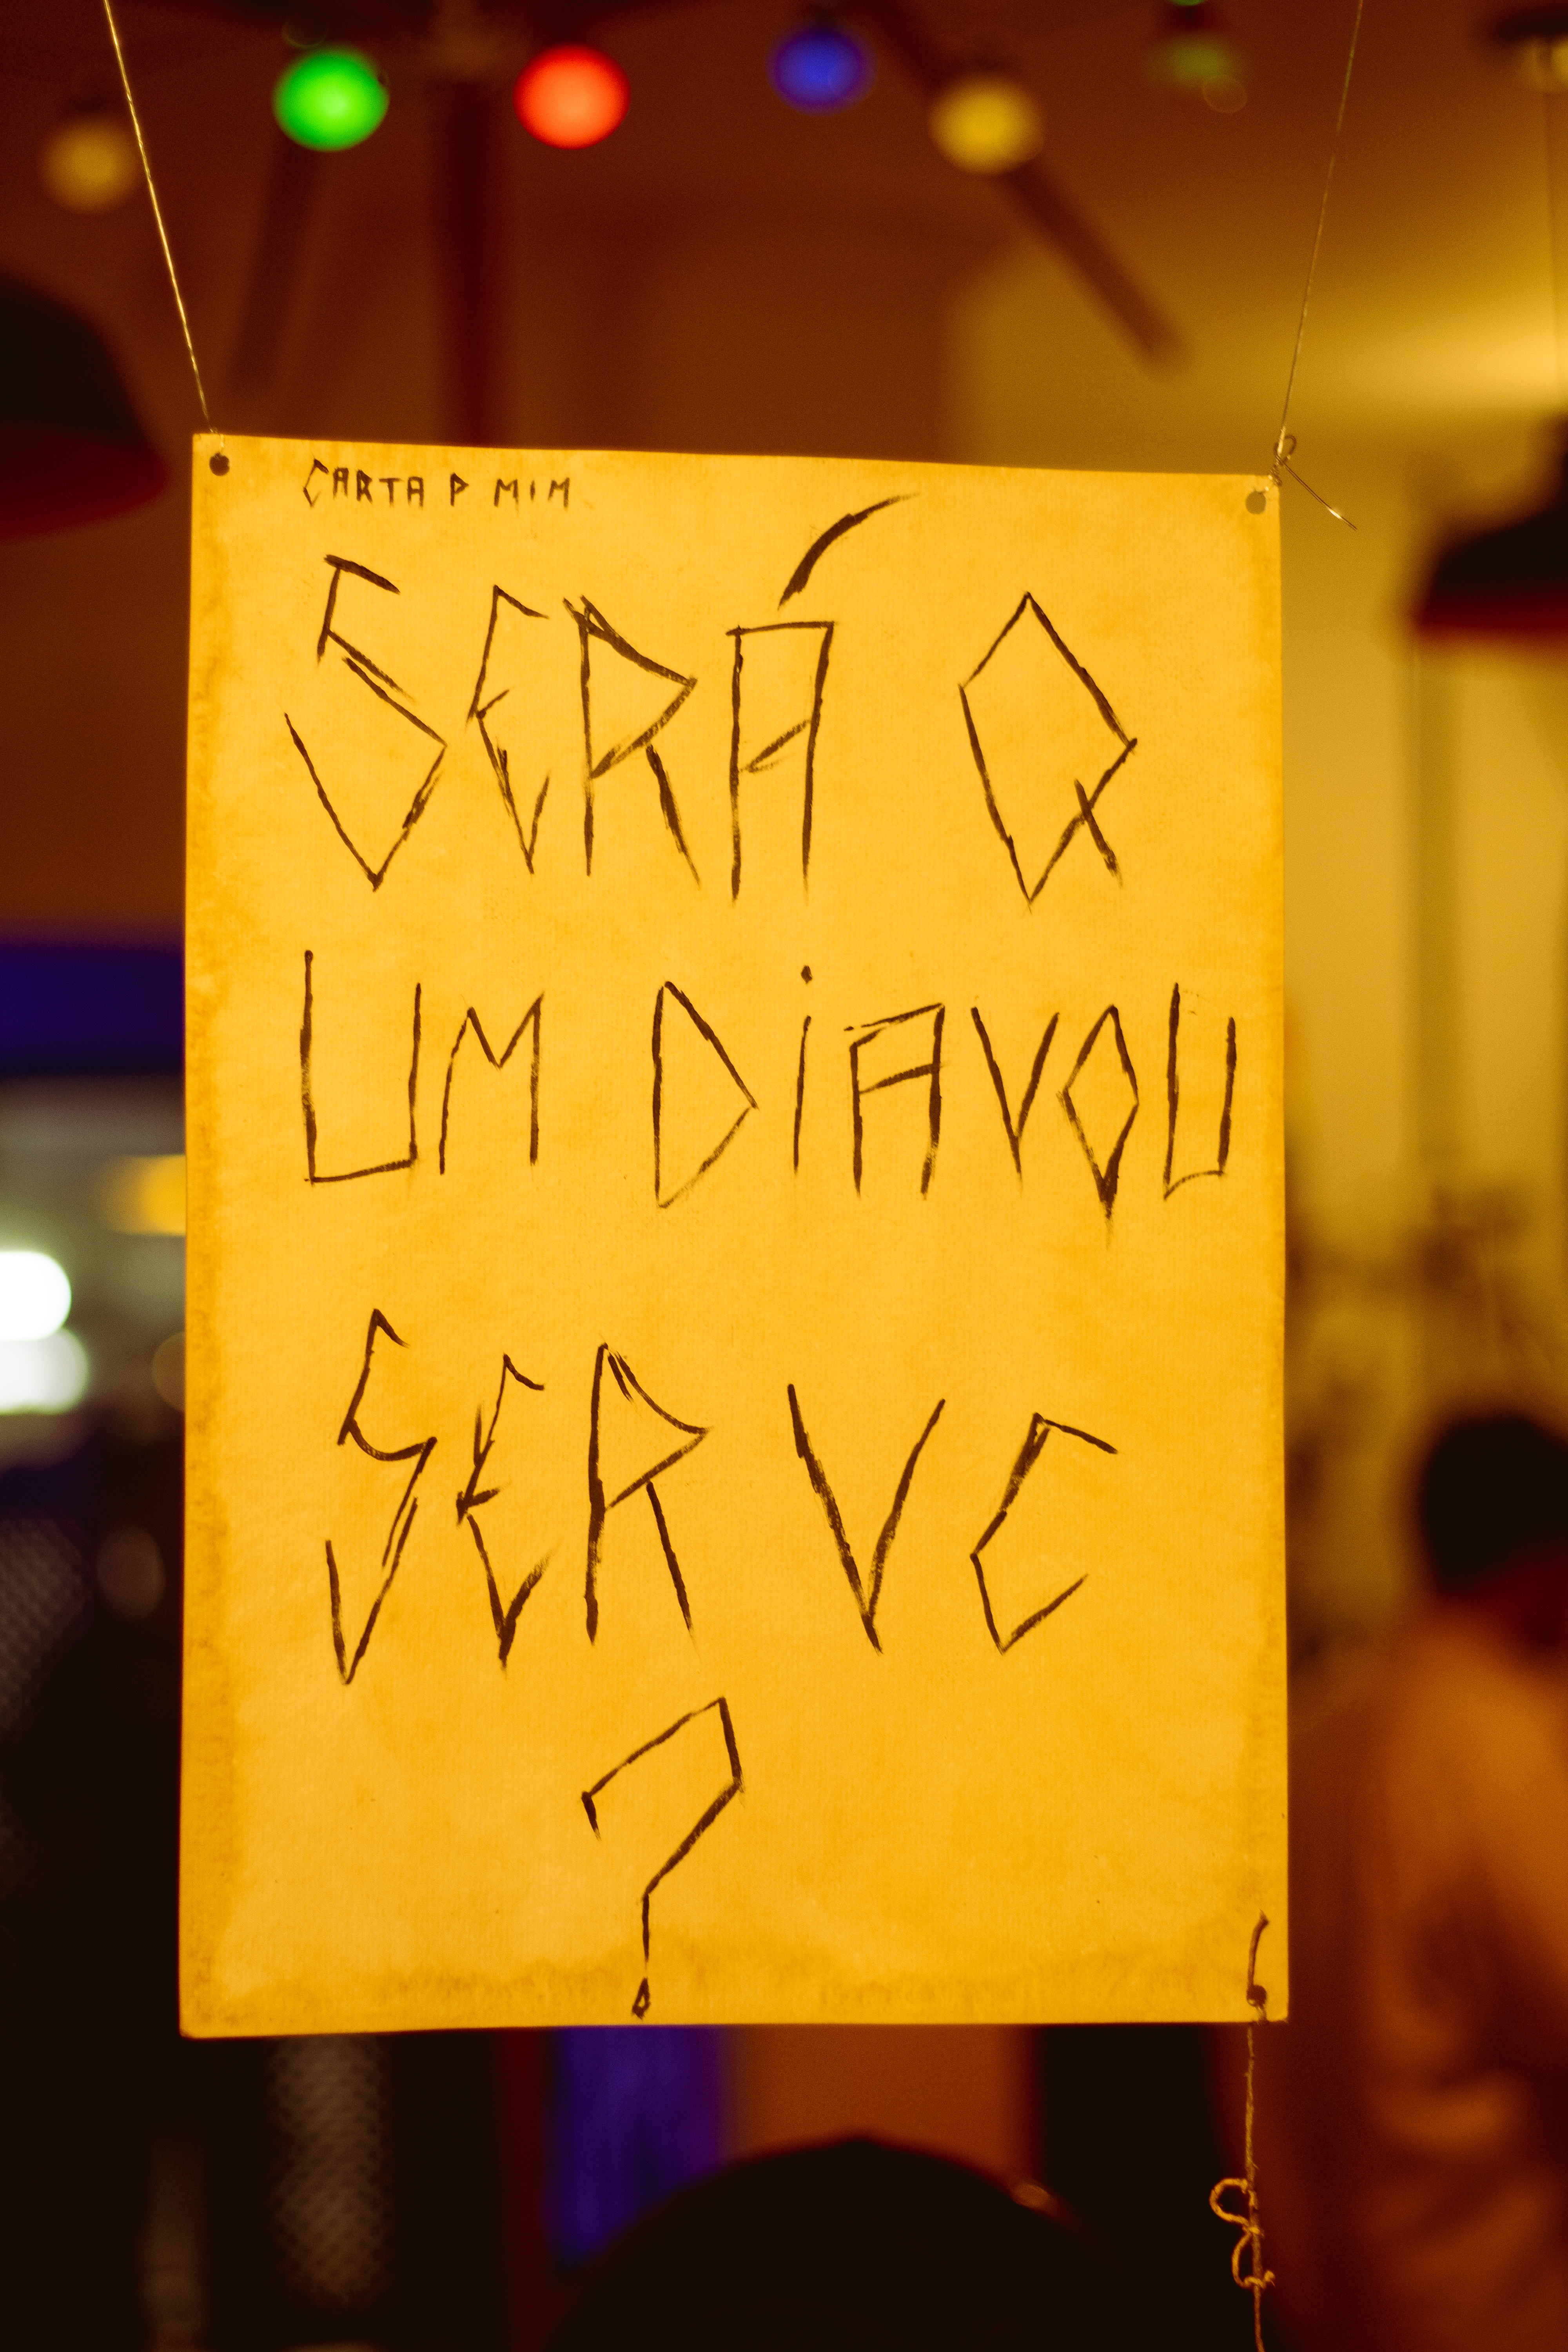 CARTA P MIM
SERÁ Q
UM DiAVOU
SER VC
?